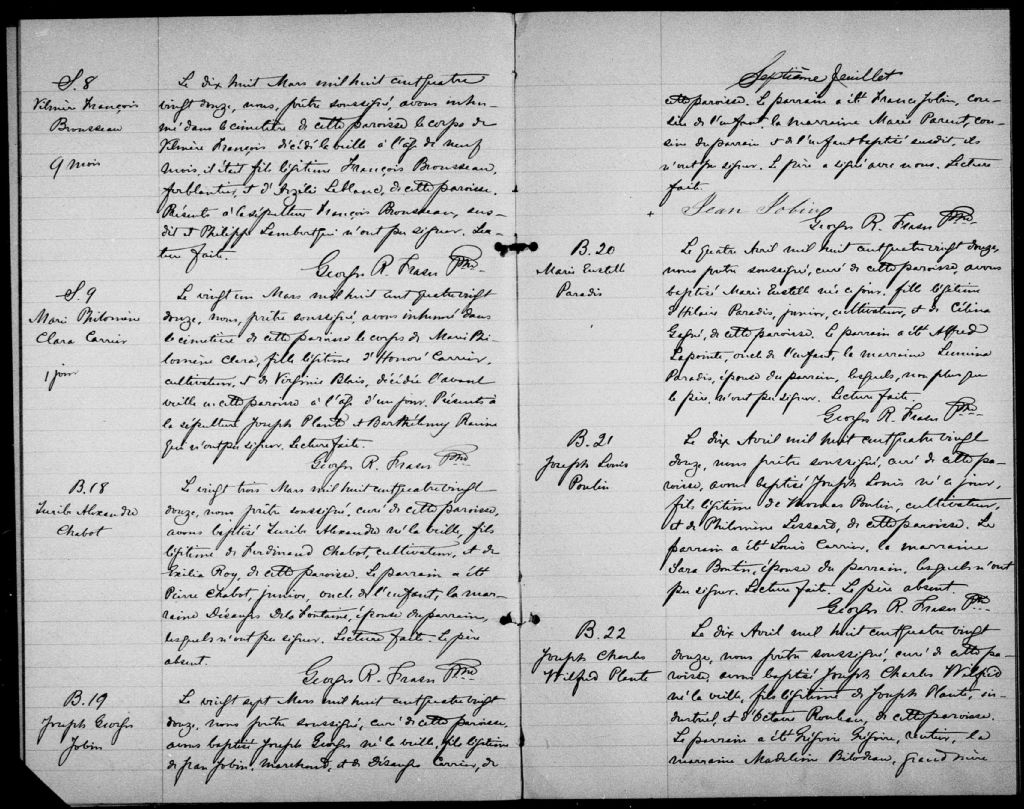 S. 8
Vilmère François
Brousseau
9 mois
Le dix huit Mars mil huit cent quatre
vingt douze, nous, prêtre soussigné, avons inhu-
mé dans le cimetière de cette paroisse le corps de
Vilmère François décédé la veille à l'âge de neuf
mois, il était fils légitime François Brousseau,
ferblantier, et d'Arzélie Leblanc, de cette paroisse.
Présents à la sépulture François Brousseau, sus-
dit et Philippe Lambert qui n'ont pu signer. Lec-
ture faite.
Georges R. Fraser Ptre
S. 9
Marie Philomène
Clara Carrier
1 jour
Le vingt un Mars mil huit cent quatre vingt
douze, nous, prêtre soussigné, avons inhumé dans
le cimetière de cette paroisse le corps de Marie Phi-
lomène Clara, fille légitime d'Honoré Carrier,
cultivateur, et de Virginie Blais, décédée l'avant
veille en cette paroisse à l'âge d'un jour. Présents à
la sépulture Joseph Planté et Barthélemy Racine
qui n'ont pu signer. Lecture faite.
Georges R. Fraser Ptre
B. 18
Alexandre
Chabot
Le vingt trois Mars mil huit cent quatre vingt
douze, nous prêtre soussigné, curé de cette paroisse,
avons baptisé Alexandre né la veille, fils
légitime de Ferdinand Chabot, cultivateur, et de
Exilia Roy, de cette paroisse. Le parrain a été
Pierre Chabot, junior, oncle de l'enfant, la mar-
raine Désanges De la Fontaine, épouse du parrain,
lesquels n'ont pu signer. Lecture faite. Le père
absent.
Georges R. Fraser Ptre
B. 19
Joseph Georges
Jobin
Le vingt sept Mars mil huit cent quatre vingt
douze, nous prêtre soussigné, curé de cette paroisse,
avons baptisé Joseph Georges né la veille, fils légitime
de Jean Jobin, marchand, et de Désanges Carrier, de
Septième feuillet
cette paroisse. Le parrain a été Francis Jobin, cou-
sin de l'enfant, la marraine Marie Parent, cou-
sine du parrain et de l'enfant baptisé susdit, ils
n'ont pu signer. Le père a signé avec nous. Lecture
faite.
+ Jean Jobin
Georges R. Fraser Ptre
B. 20
Marie Eustell
Paradis
Le quatre Avril mil huit cent quatre vingt douze,
nous prêtre soussigné, curé de cette paroisse, avons
baptisé Marie Eustell née ce jour, fille légitime
d'Hilaire Paradis, junior, cultivateur, et de Célina
Gagné, de cette paroisse. Le parrain a été Alfred
Lapointe, oncle de l'enfant, la marraine Lumina
Paradis, épouse du parrain, lesquels, non plus que
le père, n'ont pu signer. Lecture faite.
Georges R. Fraser Ptre
B. 21
Joseph Louis
Poulin
Le dix Avril mil huit cent quatre vingt
douze, nous prêtre soussigné, curé de cette pa-
roisse, avons baptisé Joseph Louis né ce jour,
fils légitime de Thomas Poulin, cultivateur,
et de Philomène Lessard, de cette paroisse. Le
parrain a été Louis Carrier, la marraine
Sara Boutin, épouse du parrain, lesquels n'ont
pu signer. Lecture faite. Le père absent.
Georges R. Fraser Ptre
B. 22
Joseph Charles
Wilfred Plante
Le dix Avril mil huit cent quatre vingt
douze, nous prêtre soussigné, curé de cette pa-
roisse, avons baptisé Joseph Charles Wilfred
né la veille, fils légitime de Joseph Plante, in-
dustriel, et d'Octavie Rouleau, de cette paroisse.
Le parrain a été Grégoire Grégoire, rentier, la
marraine Madeleine Bilodeau, grand'mère